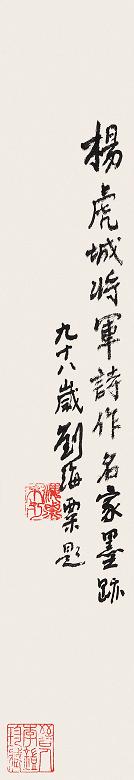 楊虎城将軍詩作名家墨跡
九十八歲劉海粟題